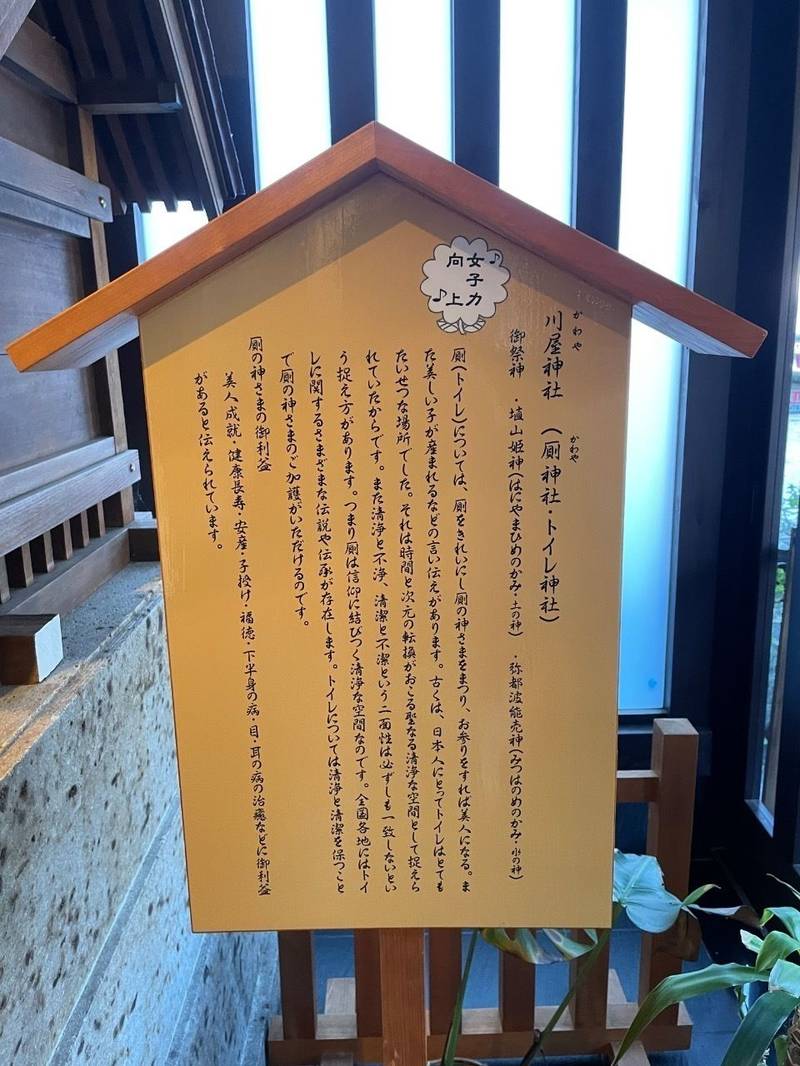 ♪女子力
向上♪
川屋神社 （厠神社・トイレ神社）
かわや
かわや
御祭神 ・埴山姫神(はにやまひめのかみ・土の神) ・弥都波能売神(みつはのめのかみ・水の神)
厠(トイレ)については、厠をきれいにし厠の神さまをまつり、お参りをすれば美人になる。ま
た美しい子が産まれるなどの言い伝えがあります。古くは、日本人にとってトイレはとても
たいせつな場所でした。それは時間と次元の転換がおこる聖なる清浄な空間として捉えら
れていたからです。また清浄と不浄、清潔と不潔という二面性は必ずしも一致しないとい
う捉え方があります。つまり厠は信仰に結びつく清浄な空間なのです。全国各地にはトイ
レに関するさまざまな伝説や伝承が存在します。トイレについては清浄と清潔を保つこと
で厠の神さまのご加護がいただけるのです。
厠の神さまの御利益
美人成就・健康長寿・安産・子授け・福徳・下半身の病・目・耳の病の治癒などに御利益
があると伝えられています。